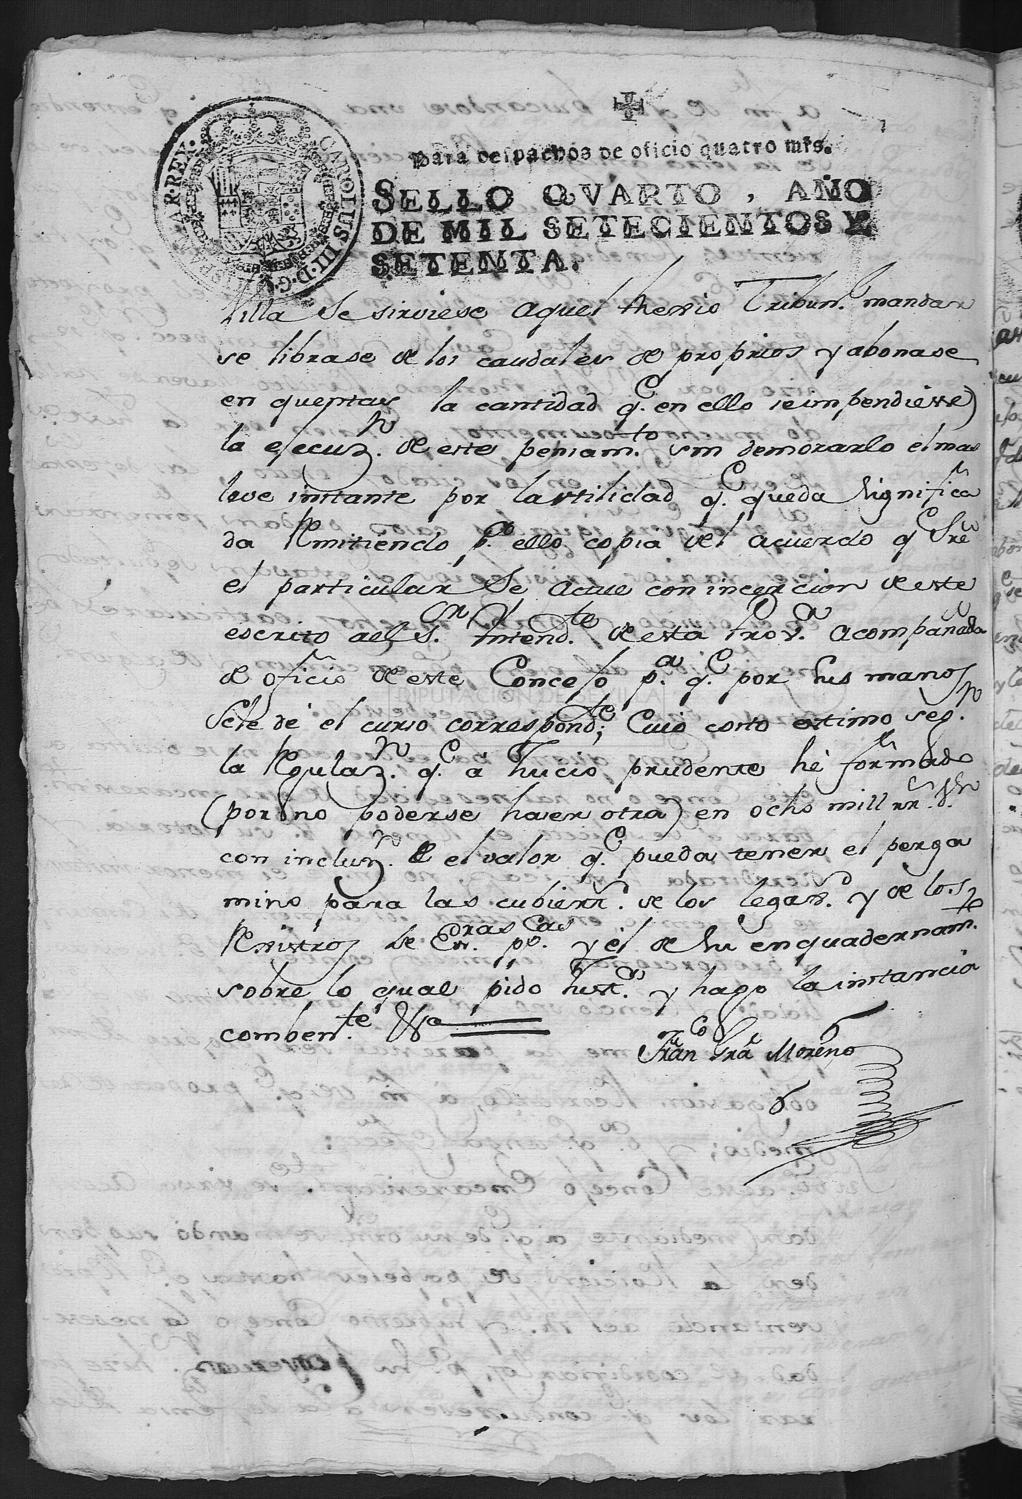 CAROLUS III·D·G· HISPANIAR·REX·
Para despachos de oficio quatro mrs.
SELLO QVARTO, AÑO
DE MIL SETECIENTOS Y
SETENTA.
Villa Se sirviese aquel Rexio Tribun.l mandar
se librase de los caudales de proprios y abonase
en quentas la cantidad q.e en ello se impendiesse)
la ejecuz.n de este pensam.to sin demorarlo el mas
leve instante por la vtilidad q.e queda Significa
da Remitiendo p.a ello copia del acuerdo q.e Sre
el particular Se actue con incercion de este
escrito al S.or Intend.te de esta Prov.a acompañada
de oficio de este Concejo p.a q.e por sus manos
Sele dé el curso correspond.te; Cuio costo estimo seg.n
la Regulaz.n q.e a Juicio prudente hé formado
(por no poderse haser otra) en ocho mill rr.s V.n
con incluz.n de el valor q.e pueda tener el perga
mino para las cubiert.s de los legax.s y de los
Rexistros de Es.ras pp.cas y el de su enquadernam.to
sobre lo qual pido Just.a y hago la instancia
comben.te &.a
Fran.co Gra Moreno
DIPUTACIÓN DE SEVILLA